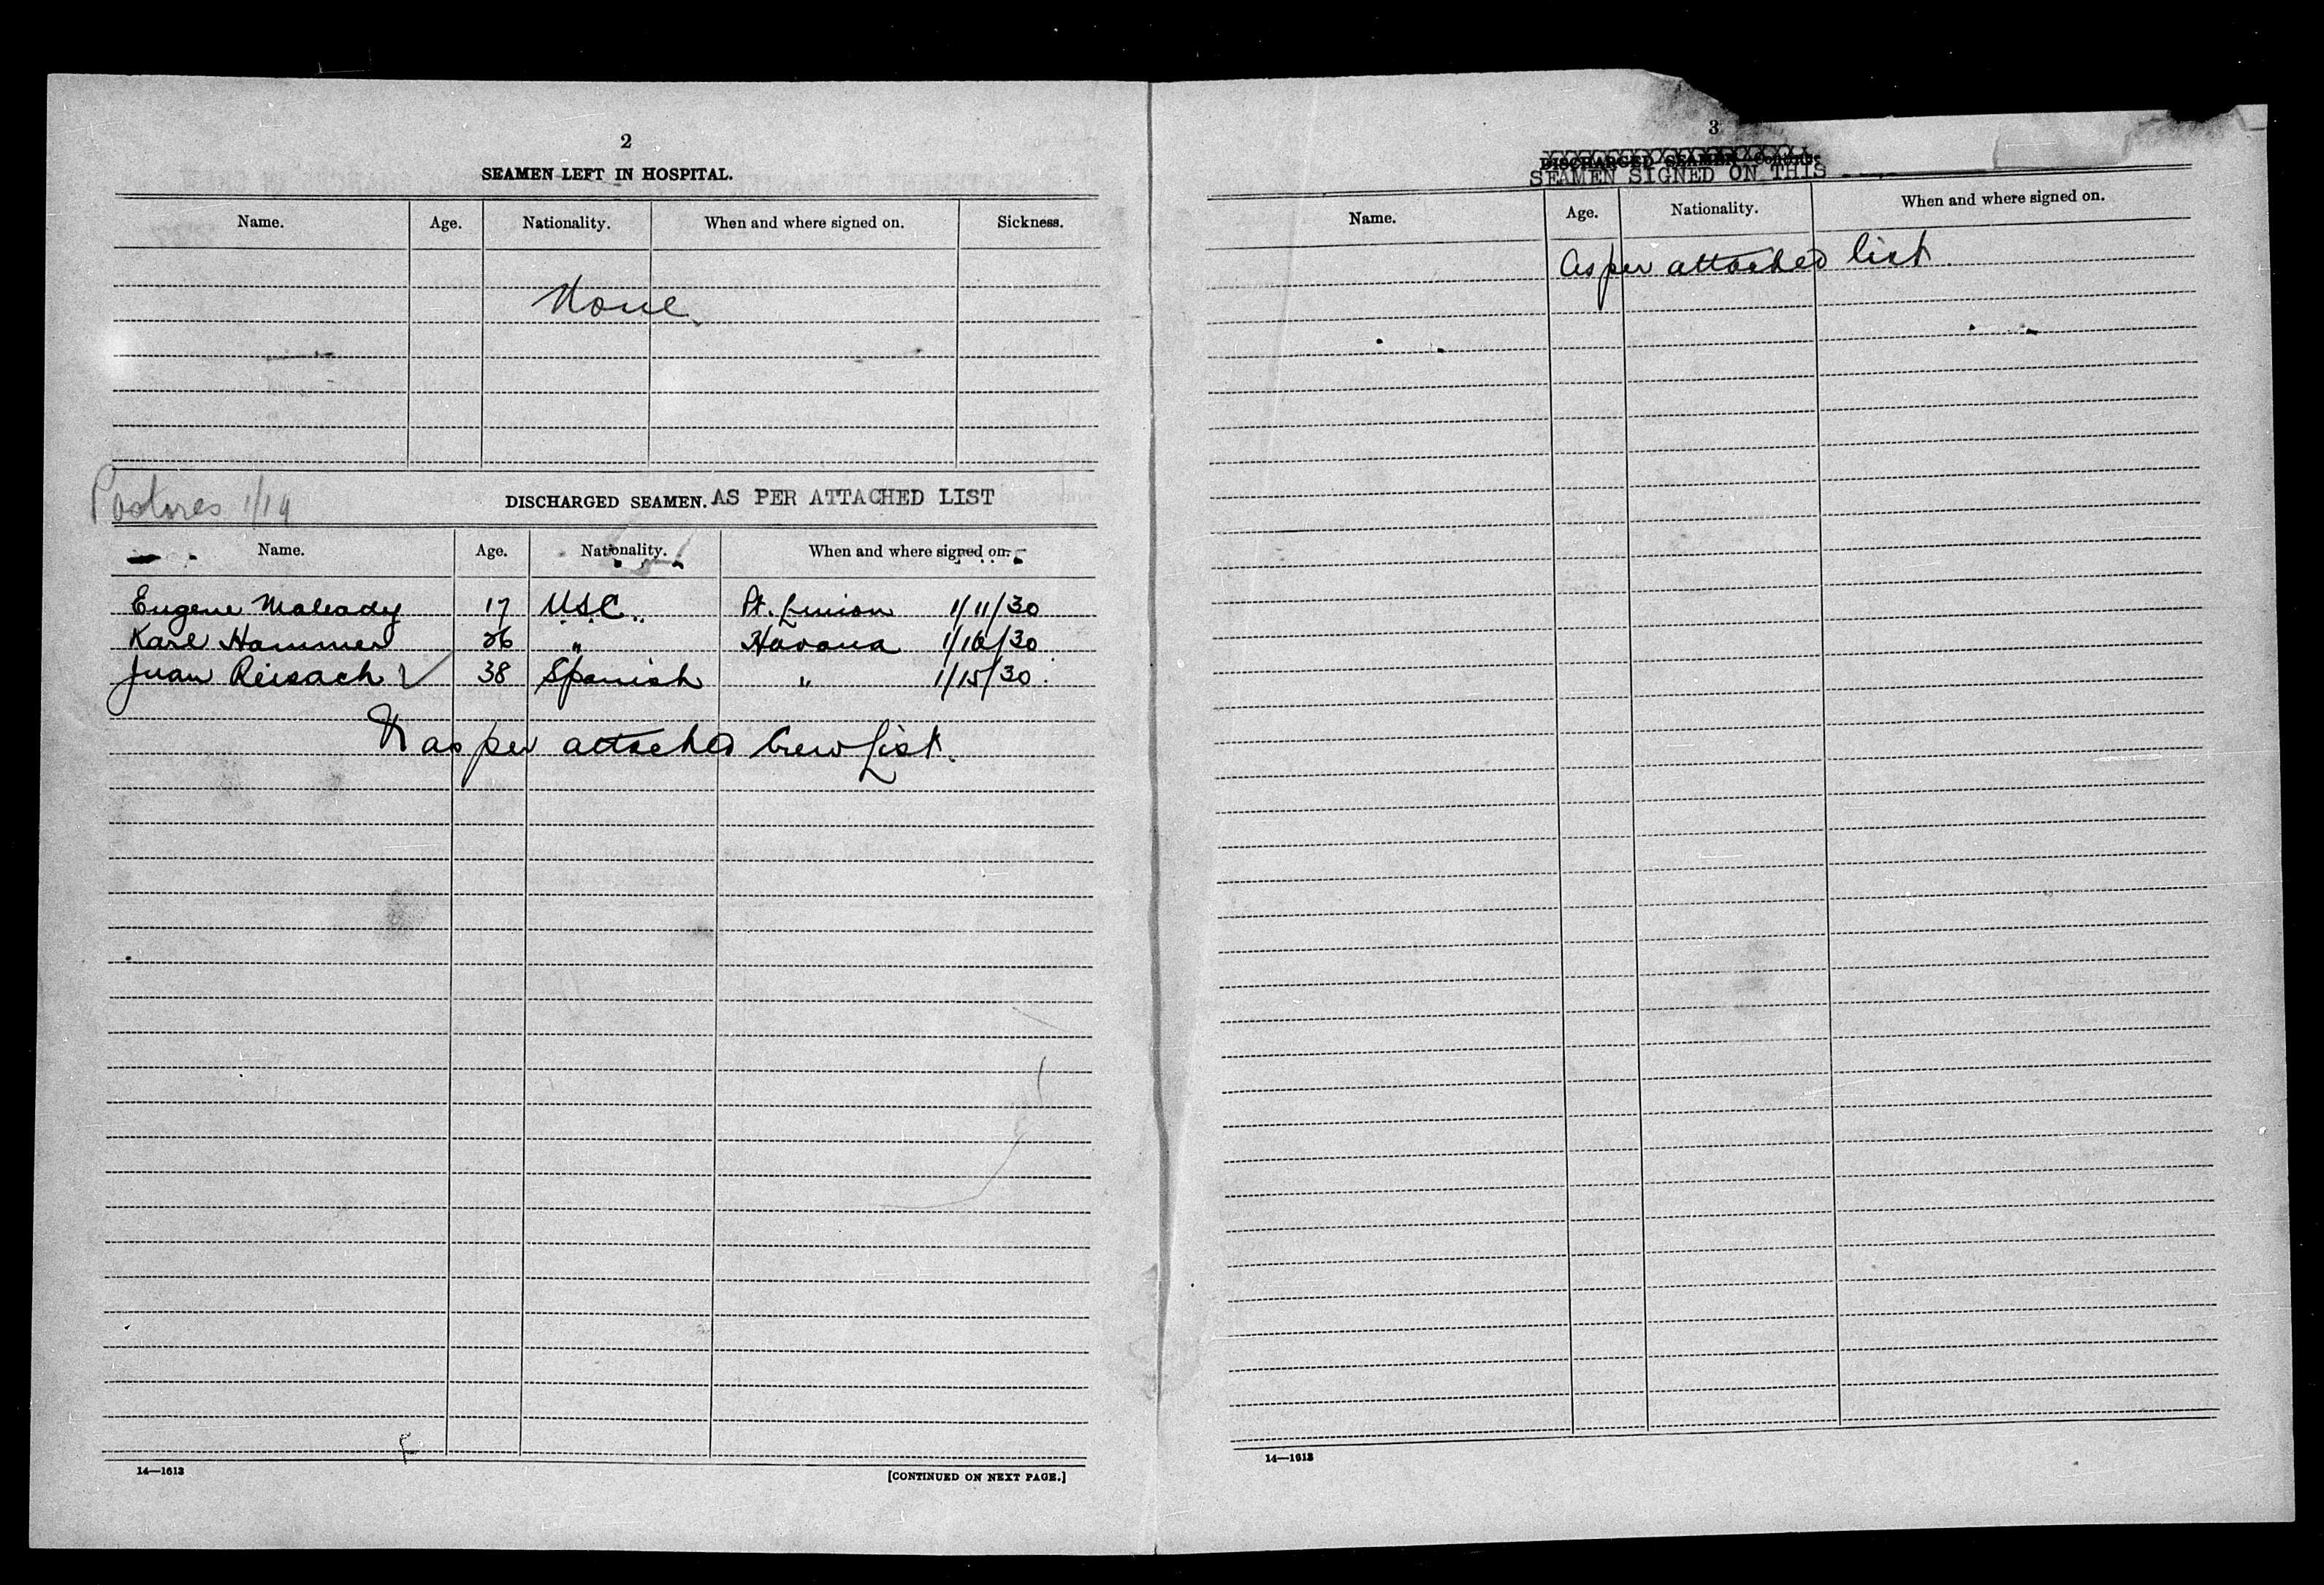 2
SEAMEN LEFT IN HOSPITAL.
Name. Age. Nationality. When and where signed on. Sickness.
None.
Pastores 1/19
DISCHARGED SEAMEN. AS PER ATTACHED LIST
Name. Age. Nationality. When and where signed on.
Eugene Maleady 17 U.S.C. Pt. Limon 1/11/30
Karl Hammer 26 " Havana 1/16/30
Juan Reisach 38 Spanish " 1/15/30.
as per attached Crew List.
14—1613
[CONTINUED ON NEXT PAGE.]
3
DISCHARGED SEAMEN—Continue
SEAMEN SIGNED ON THIS
Name. Age. Nationality. When and where signed on.
As per attached list.
14—1613